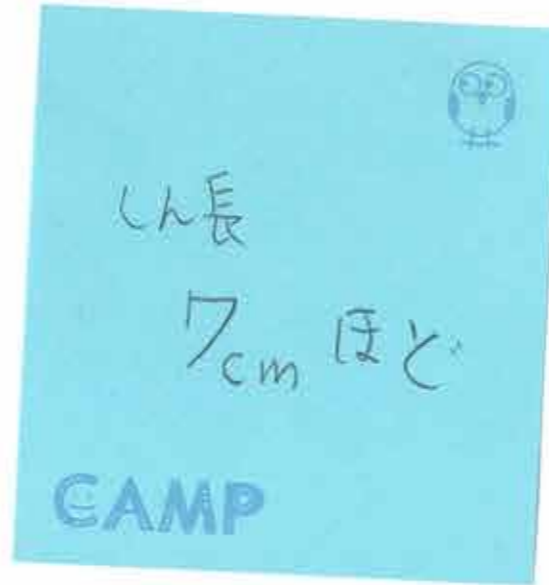 しん長
7cm ほど
CAMP